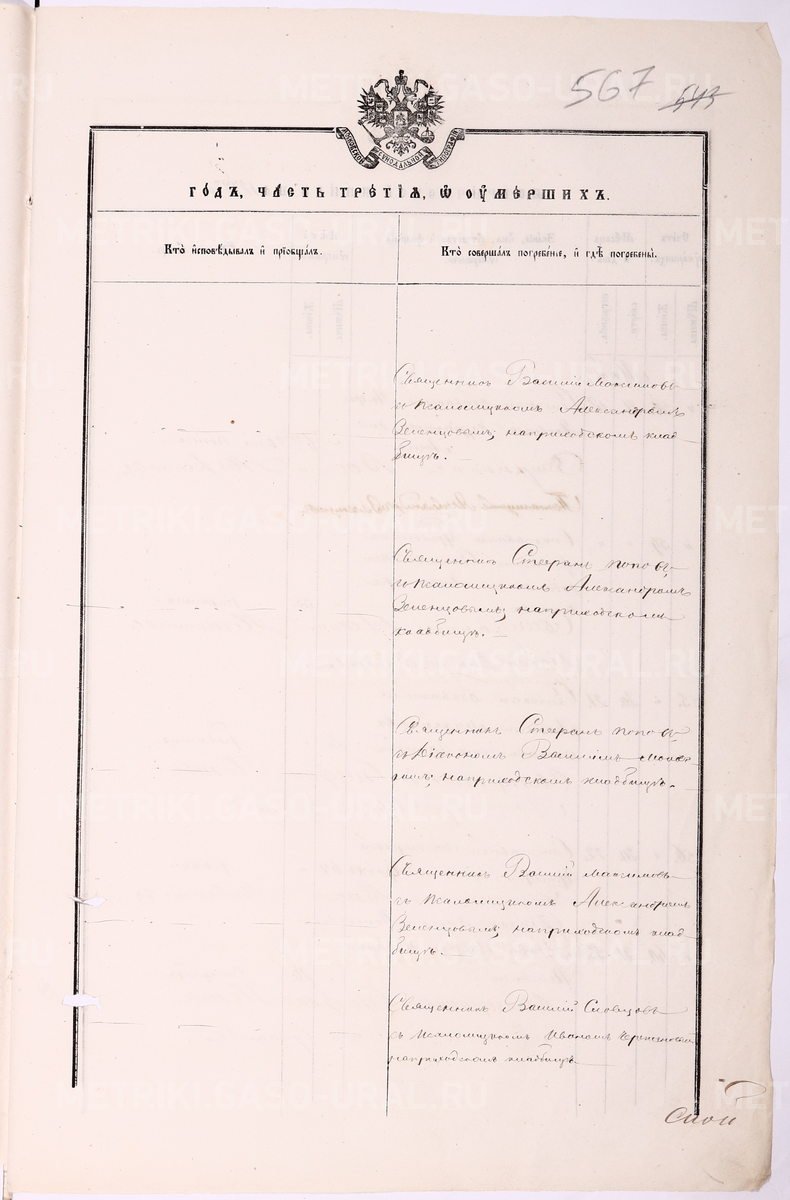 567 543
МОСКОВСКОЙ СѴНОДАЛЬНОЙ ТИПОГРАФІИ
ГО́ДЪ, ЧА́СТЬ ТРЕ́ТІѦ, Ѡ ОУ҆МЕ́РШИХЪ.
Кто̀ и҆сповѣ́дывалъ и҆ прїобща́лъ.
Кто̀ соверша́лъ погребе́нїе, и҆ гдѣ̀ погребены̀.
Священникъ Василій Максимовъ
съ псаломщикомъ Александромъ
Зеленцовымъ; на приходскомъ клад-
бищѣ.
Священникъ Стефанъ Поповъ
съ псаломщикомъ Александромъ
Зеленцовымъ; на приходскомъ
кладбищѣ.
Священникъ Стефанъ Поповъ
съ Діакономъ Василіемъ
на приходскомъ кладбищѣ.
Священникъ Василій Максимовъ
съ псаломщикомъ Александромъ
Зеленцовымъ; на приходскомъ клад-
бищѣ.
Священникъ Василій Словцовъ
съ псаломщикомъ Иваномъ
на приходскомъ кладбищѣ
METRIKI.GASO-URAL.RU